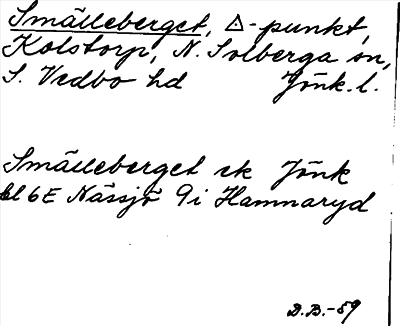 Smälleberget, Δ-punkt,
Kolstorp, N. Solberga sn,
S. Vedbo hd Jönk. l.
Smälleberget ek Jönk
bl 6E Nässjö 9i Hamnaryd
D.B.-59